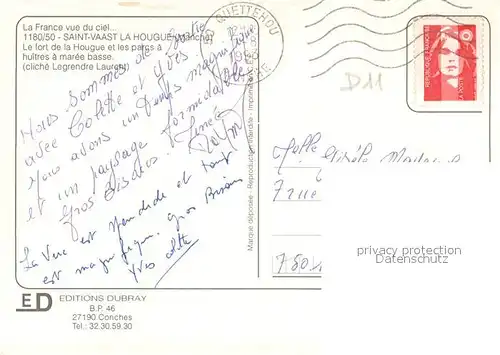 La France vue du ciel...
1180/50 - SAINT-VAAST LA HOUGUE (Manche)
Le fort de la Hougue et les parcs à
huîtres à marée basse.
(cliché Legrendre Laurent)
QUETTEHOU
D11
RÉPUBLIQUE FRANÇAISE
Nous sommes de sortie
avec Colette et Yves
Nous avons un temps magnifique
et un paysage formidable
Gros Bisous.
La Vue est splendide et tout
est magnifique. Gros Bisous
Yves Colette
Marque déposée - Reproduction interdite - Imprimé
Melle
privacy protection
Datenschutz
ED EDITIONS DUBRAY
B.P. 46
27190 Conches
Tel.: 32.30.59.30